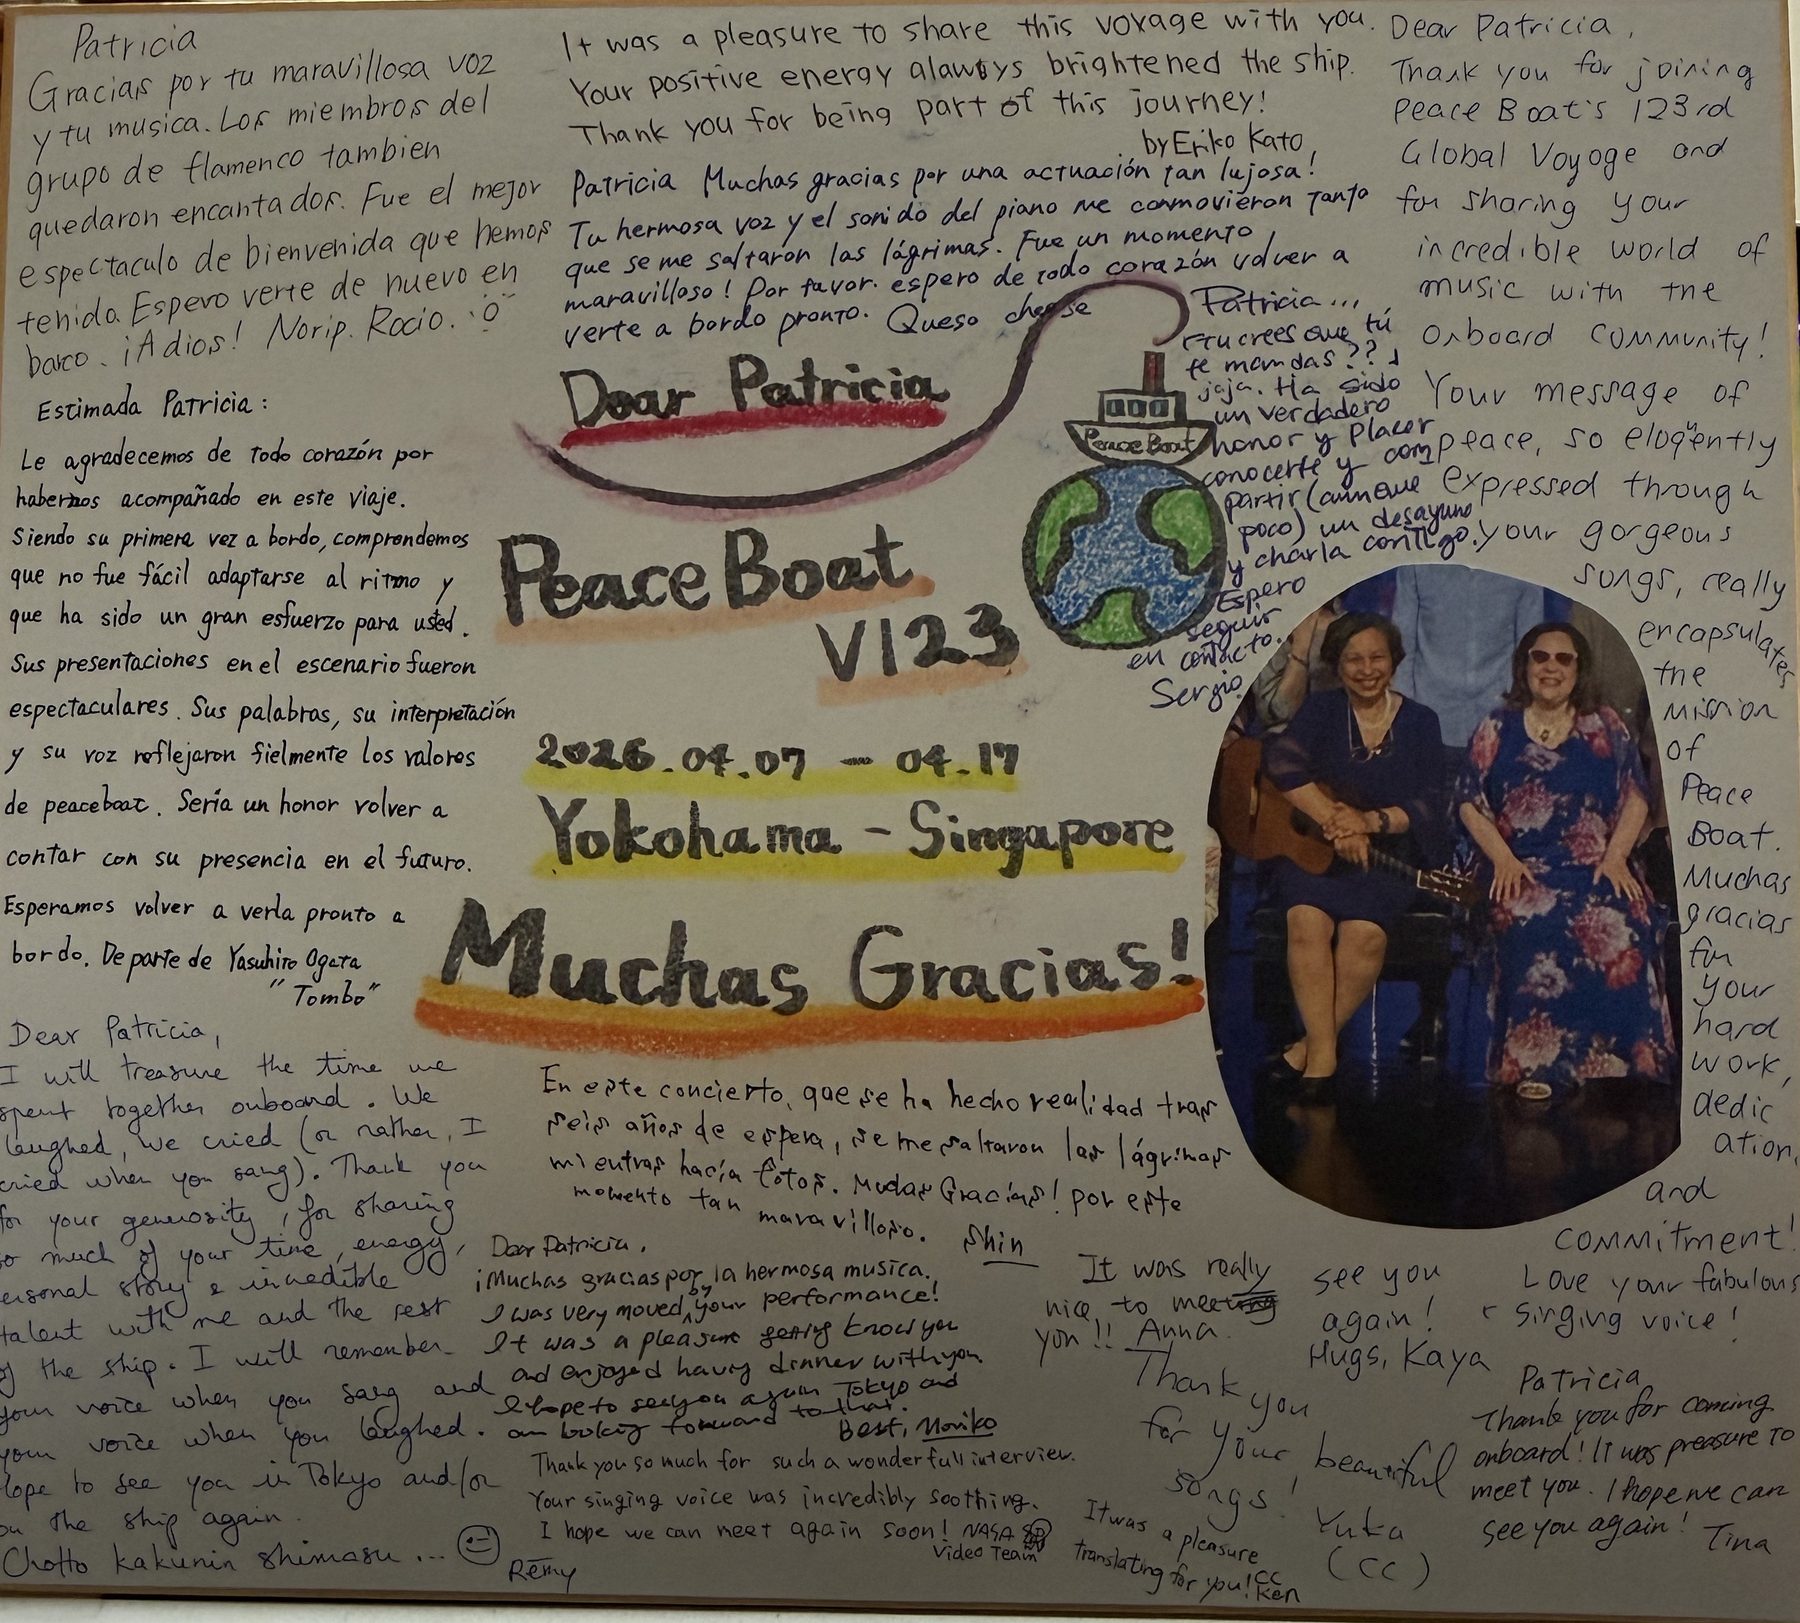 Patricia
Gracias por tu maravillosa voz
y tu musica. Los miembros del
grupo de flamenco tambien
quedaron encantados. Fue el mejor
espectaculo de bienvenida que hemos
tenido. Espero verte de nuevo en
barco. ¡Adios! Norip. Rocio.
It was a pleasure to share this voyage with you.
Your positive energy always brightened the ship.
Thank you for being part of this journey!
by Eriko Kato
Patricia Muchas gracias por una actuación tan lujosa!
Tu hermosa voz y el sonido del piano me conmovieron tanto
que se me saltaron las lágrimas. Fue un momento
maravilloso! Por favor. espero de todo corazón volver a
verte a bordo pronto. Queso cheese
Dear Patricia,
Thank you for joining
Peace Boat's 123rd
Global Voyage and
for sharing your
incredible world of
music with the
onboard community!
Your message of
peace, so eloquently
expressed through
your gorgeous
songs, really
encapsulates
the
mission
of
Peace
Boat.
Muchas
gracias
for
your
hard
work,
dedic
ation,
and
commitment!
Love your fabulous
singing voice!
see you
again!
Hugs, Kaya
Patricia...
tu crees que tú
te mandas??
jaja. Ha sido
un verdadero
honor y placer
conocerte y com
partir (aunque
poco) un desayuno
y charla contigo.
Espero
seguir
en contacto.
Sergio
Dear Patricia
Peace Boat
Peace Boat
V123
2026.04.07 - 04.17
Yokohama - Singapore
Muchas Gracias!
Estimada Patricia:
Le agradecemos de todo corazón por
habernos acompañado en este viaje.
Siendo su primera vez a bordo, comprendemos
que no fue fácil adaptarse al ritmo y
que ha sido un gran esfuerzo para usted.
Sus presentaciones en el escenario fueron
espectaculares. Sus palabras, su interpretación
y su voz reflejaron fielmente los valores
de peaceboat. Sería un honor volver a
contar con su presencia en el futuro.
Esperamos volver a verla pronto a
bordo. De parte de Yasuhiro Ogata
"Tombo"
Dear Patricia,
I will treasure the time we
spent together onboard. We
laughed, we cried (or rather, I
cried when you sang). Thank you
for your generosity, for sharing
so much of your time, energy,
ersonal story & incredible
talent with me and the rest
of the ship. I will remember
your voice when you sang and
your voice when you laughed.
Hope to see you in Tokyo and/or
on the ship again.
Chotto kakunin shimasu...
Rémy
En este concierto, que se ha hecho realidad tras
seis años de espera, se me saltaron las lágrimas
mientras hacía fotos. Muchas Gracias! por este
momento tan maravilloso. Shin
Dear Patricia,
¡Muchas gracias por la hermosa musica.
I was very moved by your performance!
It was a pleasure getting know you
and enjoyed having dinner with you.
I hope to see you again Tokyo and
am looking forward to that.
Best, Moriko
Thank you so much for such a wonderful interview.
Your singing voice was incredibly soothing.
I hope we can meet again soon! NASA
Video Team
It was really
nice to meeting
you!! Anna
Thank you
for your beautiful
songs!
Yuka
(CC)
It was a pleasure
translating for you! CC
Ken
Patricia
Thank you for coming
onboard! It was pleasure to
meet you. I hope we can
see you again! Tina